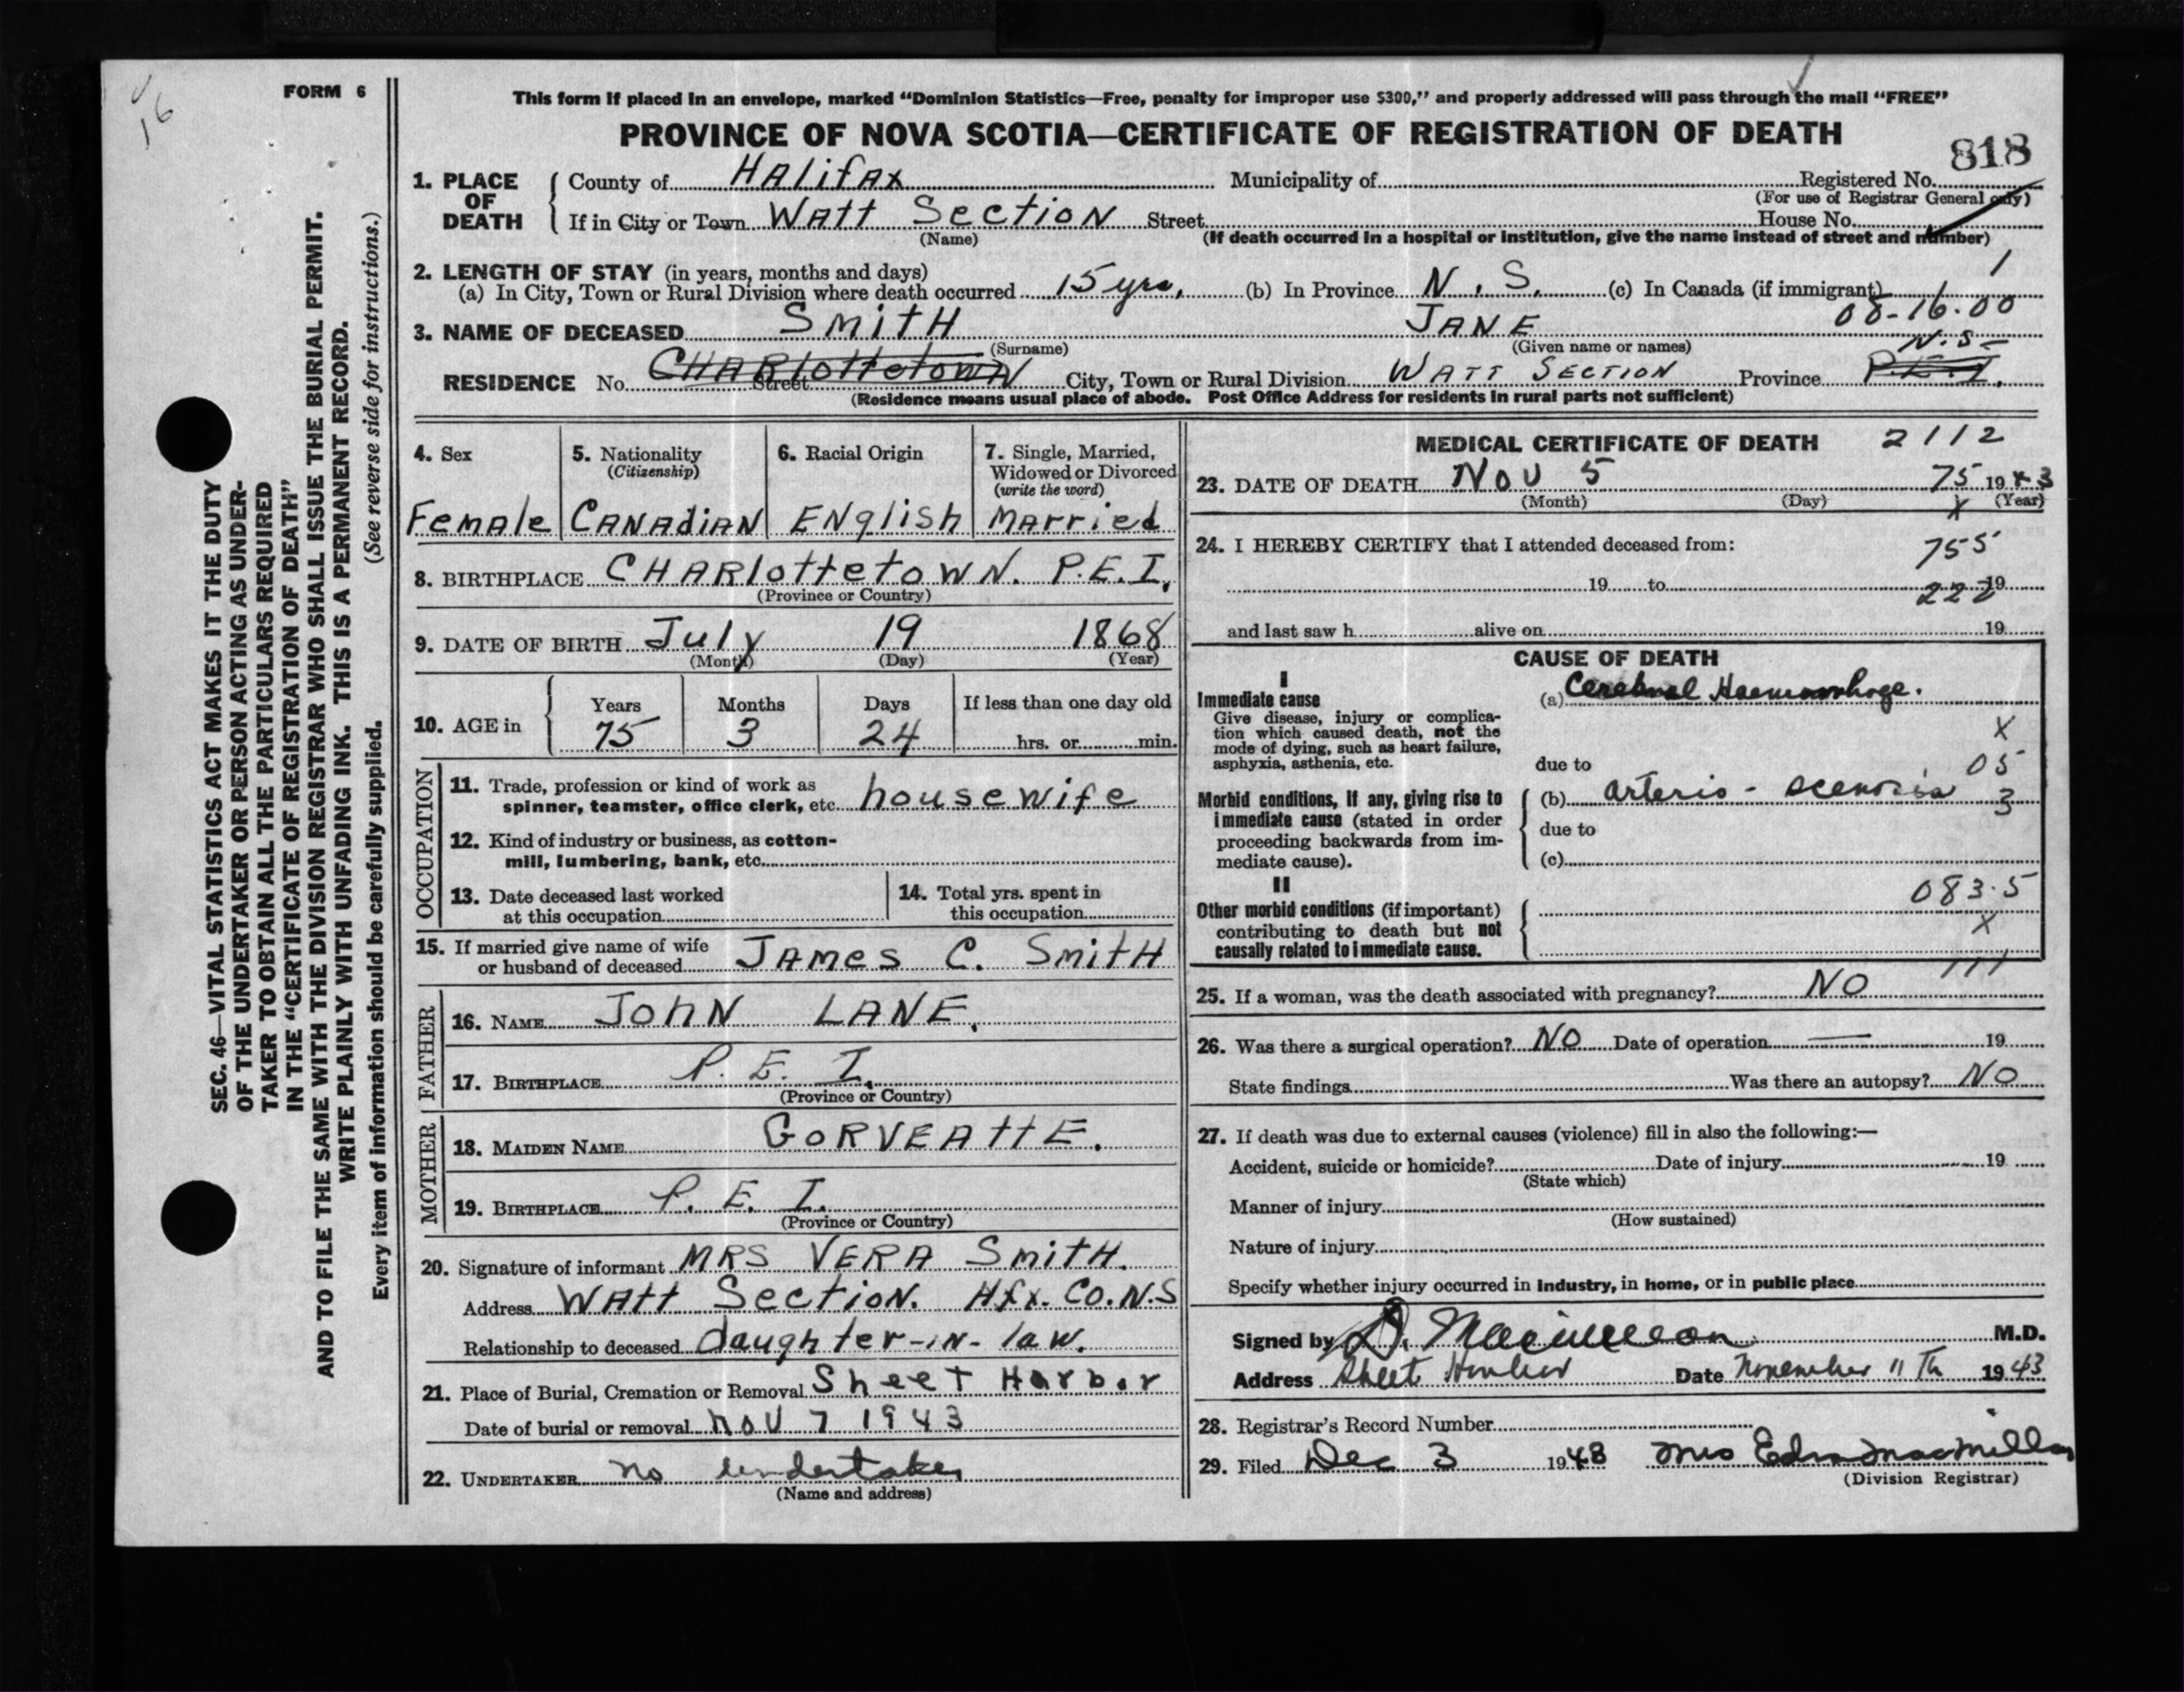 16
FORM 6
This form if placed in an envelope, marked “Dominion Statistics—Free, penalty for improper use $300,” and properly addressed will pass through the mail “FREE”
PROVINCE OF NOVA SCOTIA—CERTIFICATE OF REGISTRATION OF DEATH
818
1. PLACE OF DEATH
County of HALifAX Municipality of Registered No.
(For use of Registrar General only)
If in City or Town WAtt SectioN Street House No.
(Name) (If death occurred in a hospital or institution, give the name instead of street and number)
2. LENGTH OF STAY (in years, months and days)
(a) In City, Town or Rural Division where death occurred 15 yrs. (b) In Province N. S. (c) In Canada (if immigrant)
1
08-16.00
3. NAME OF DECEASED SmitH JANE
(Surname) (Given name or names)
N.S.
RESIDENCE No. CHARlottetowN Street City, Town or Rural Division WATT SECTION Province P.E.I.
(Residence means usual place of abode. Post Office Address for residents in rural parts not sufficient)
4. Sex 5. Nationality (Citizenship) 6. Racial Origin 7. Single, Married, Widowed or Divorced (write the word)
FemAle CANAdiAN ENglish MArried
8. BIRTHPLACE CHARlottetowN. P.E.I.
(Province or Country)
9. DATE OF BIRTH July 19 1868
(Month) (Day) (Year)
10. AGE in Years Months Days If less than one day old
75 3 24 hrs. or min.
OCCUPATION
11. Trade, profession or kind of work as
spinner, teamster, office clerk, etc. housewife
12. Kind of industry or business, as cotton-
mill, lumbering, bank, etc.
13. Date deceased last worked
at this occupation
14. Total yrs. spent in
this occupation
15. If married give name of wife
or husband of deceased JAmes C. SmitH
FATHER
16. NAME JohN LANE.
17. BIRTHPLACE P. E. I.
(Province or Country)
MOTHER
18. MAIDEN NAME GORVEAttE.
19. BIRTHPLACE P. E. I.
(Province or Country)
20. Signature of informant MRS VERA SmitH.
Address WAtt SectioN. Hfx. CO. N.S
Relationship to deceased daughter-iN-law.
21. Place of Burial, Cremation or Removal Sheet Harbor
Date of burial or removal NoV 7 1943
22. UNDERTAKER no undertaker
(Name and address)
MEDICAL CERTIFICATE OF DEATH 2112
23. DATE OF DEATH Nov 5 75 1943
(Month) (Day) (Year)
x
24. I HEREBY CERTIFY that I attended deceased from:
755
19 to 19
and last saw h alive on 19
CAUSE OF DEATH
I
Immediate cause
Give disease, injury or complica-
tion which caused death, not the
mode of dying, such as heart failure,
asphyxia, asthenia, etc.
(a) Cerebral Haemorrhage.
X
due to
05
Morbid conditions, if any, giving rise to
immediate cause (stated in order
proceeding backwards from im-
mediate cause).
(b) arterio - 3
due to
(c)
II
Other morbid conditions (if important)
contributing to death but not
causally related to immediate cause.
083.5
X
111
25. If a woman, was the death associated with pregnancy? NO
26. Was there a surgical operation? NO Date of operation — 19
State findings Was there an autopsy? NO
27. If death was due to external causes (violence) fill in also the following:—
Accident, suicide or homicide? Date of injury 19
(State which)
Manner of injury
(How sustained)
Nature of injury
Specify whether injury occurred in industry, in home, or in public place
Signed by D. M.D.
Address Sheet Harbor Date November 11th 1943
28. Registrar's Record Number
29. Filed Dec 3 1943 Mrs Edna MacMillan
(Division Registrar)
SEC. 46—VITAL STATISTICS ACT MAKES IT THE DUTY
OF THE UNDERTAKER OR PERSON ACTING AS UNDER-
TAKER TO OBTAIN ALL THE PARTICULARS REQUIRED
IN THE “CERTIFICATE OF REGISTRATION OF DEATH”
AND TO FILE THE SAME WITH THE DIVISION REGISTRAR WHO SHALL ISSUE THE BURIAL PERMIT.
WRITE PLAINLY WITH UNFADING INK. THIS IS A PERMANENT RECORD.
(See reverse side for instructions.)
Every item of information should be carefully supplied.